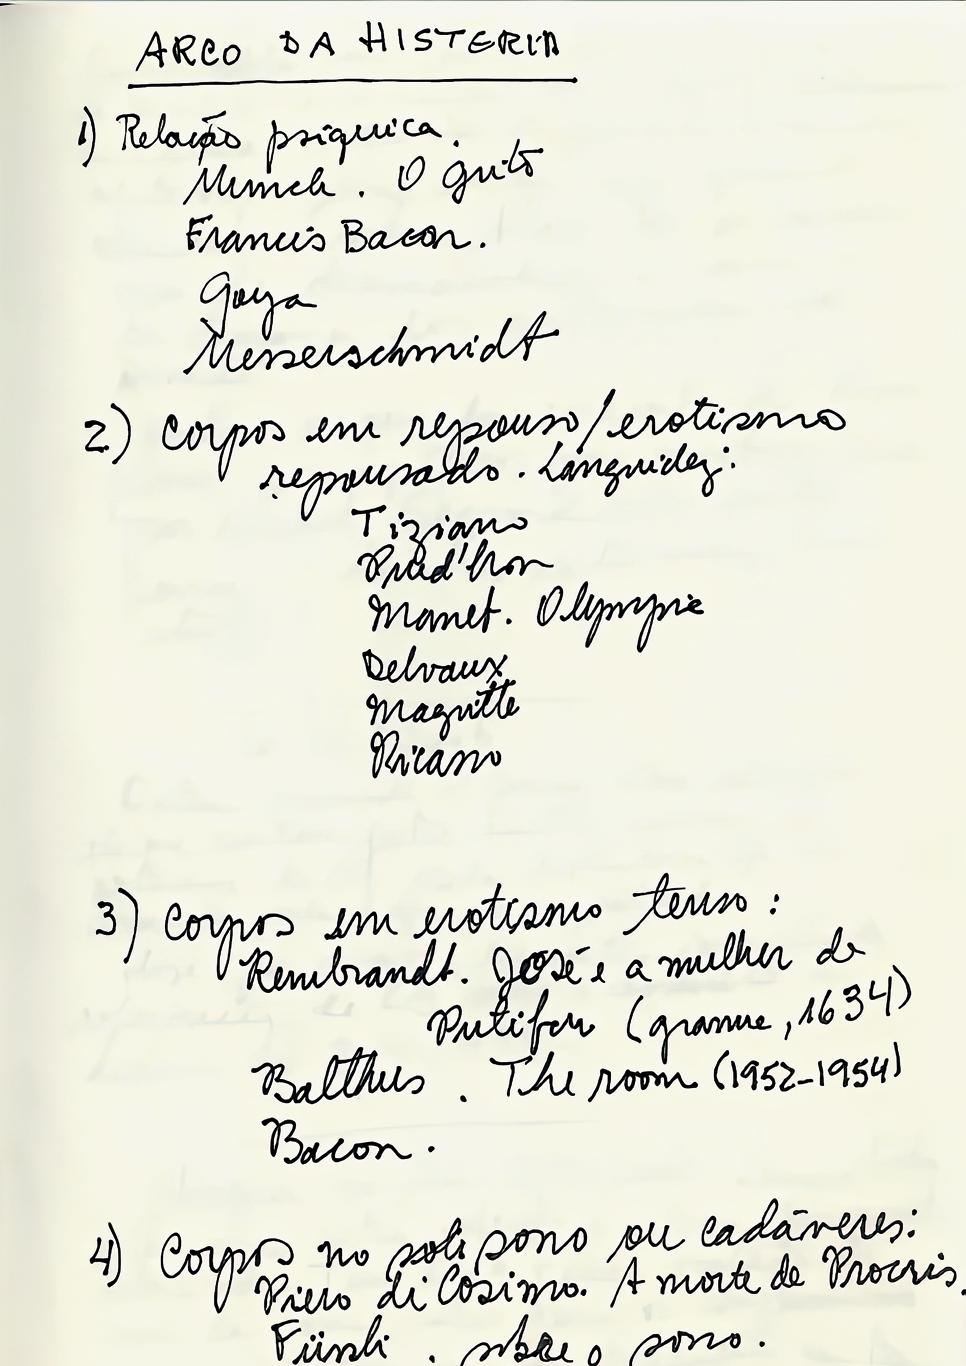 ARCO DA HISTERIA
1) Relação psíquica.
Munch. O grito
Francis Bacon.
Goya
Messerschmidt
2) Corpos em repouso/erotismo
repousado. Languidez:
Tiziano
Prud'hon
Manet. Olympie
Delvaux
Magritte
Picasso
3) Corpos em erotismo tenso:
Rembrandt. José e a mulher de
Putifar (gravure, 1634)
Balthus. The room (1952-1954)
Bacon.
4) Corpos no sono ou cadáveres:
Piero di Cosimo. A morte de Procris.
Füssli. sobre o sono.